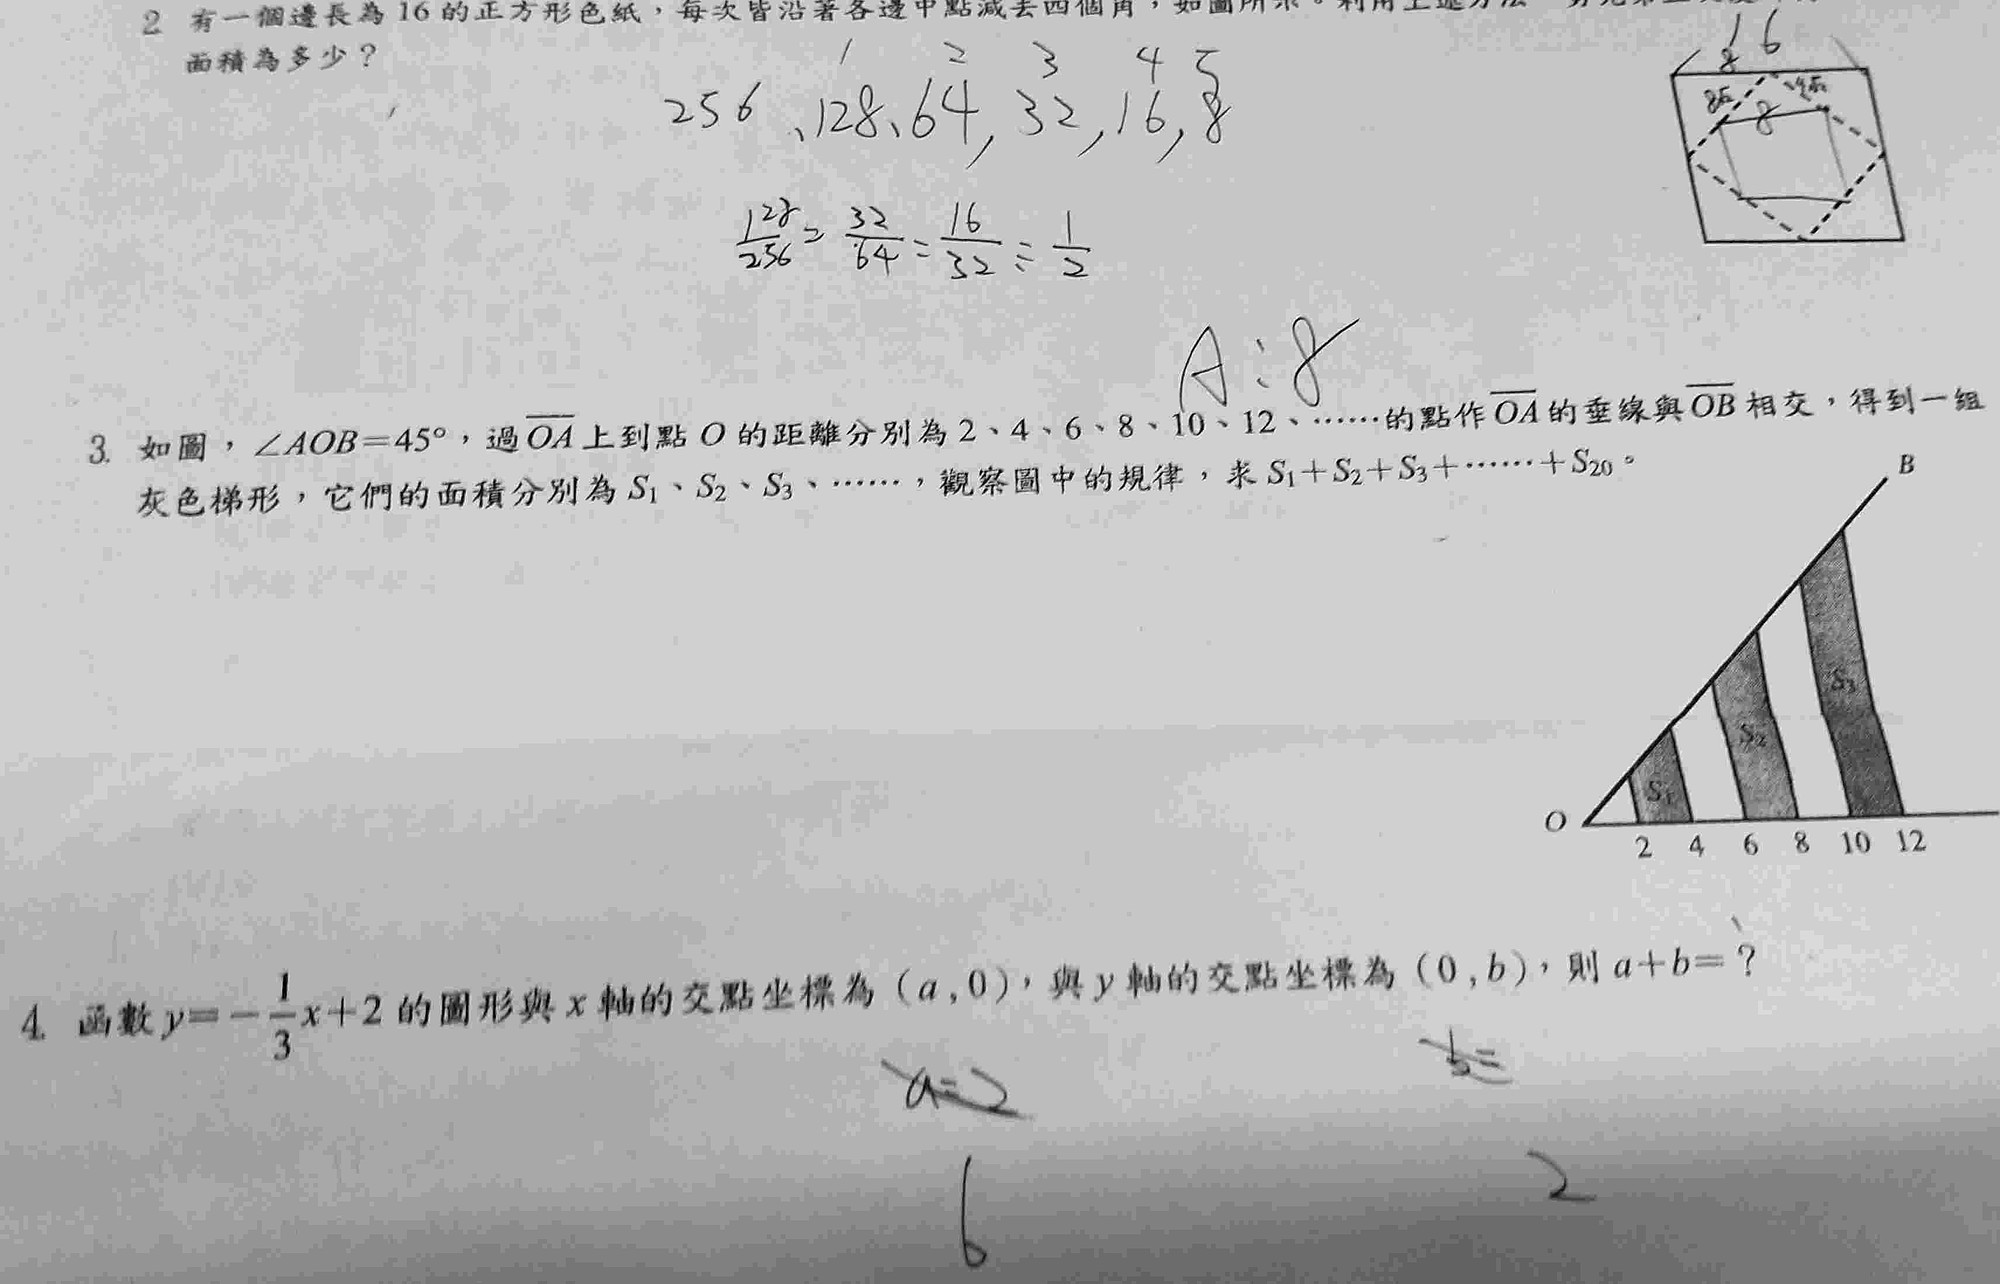 2. 有一個邊長為16的正方形色紙，每次皆沿著各邊中點減去四個角，如圖所示。利用上述方法
面積為多少？
1 2 3 4 5
256、128、64, 32, 16, 8
128/256 = 32/64 = 16/32 = 1/2
A:8
16
8
8
3. 如圖，∠AOB=45°，過OA上到點O的距離分別為2、4、6、8、10、12、……的點作OA的垂線與OB相交，得到一組
灰色梯形，它們的面積分別為S₁、S₂、S₃、……，觀察圖中的規律，求S₁+S₂+S₃+……+S₂₀。
B
S₃
S₂
S₁
O
2 4 6 8 10 12
4. 函數y=-1/3x+2的圖形與x軸的交點坐標為(a,0)，與y軸的交點坐標為(0,b)，則a+b=?
a=2 b=
6 2